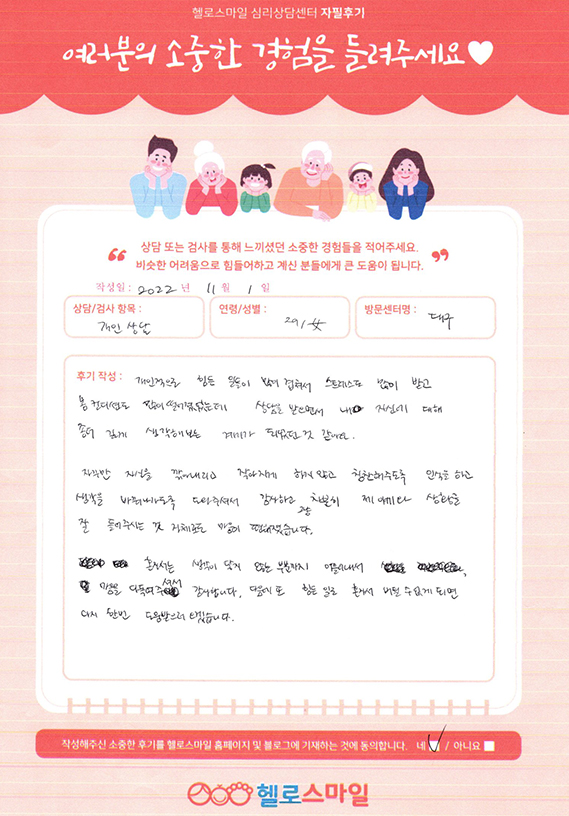 헬로스마일 심리상담센터 자필후기
여러분의 소중한 경험을 들려주세요♥
“ 상담 또는 검사를 통해 느끼셨던 소중한 경험들을 적어주세요.
비슷한 어려움으로 힘들어하고 계신 분들에게 큰 도움이 됩니다. ”
작성일 : 2022 년 11 월 1 일
상담/검사 항목 : 개인 상담
연령/성별 : 29 / 女
방문센터명 : 대구
후기 작성 : 개인적으로 힘든 일들이 많이 겹쳐서 스트레스도 많이 받고
몸 컨디션도 많이 떨어졌었는데 상담을 받으면서 내 자신에 대해
좀더 깊게 생각해보는 계기가 되었던 것 같아요.
자꾸만 자신을 깎아내리고 작아지게 하지 않고 칭찬해주도록 인식을 하고
생각을 바꿔나가도록 도와주셔서 감사하고 찬찬히 제 얘기나 상황을
잘 들어주시는 것 자체로도 마음이 편해졌습니다.
혼자서는 생각이 닿지 않는 부분까지 이끌어내서
마음을 다독여주셔서 감사합니다. 다음에 또 힘든 일로 혼자서 버틸 수 없게 되면
다시 한번 도움받으러 오겠습니다.
작성해주신 소중한 후기를 헬로스마일 홈페이지 및 블로그에 기재하는 것에 동의합니다. 네 / 아니요
헬로스마일